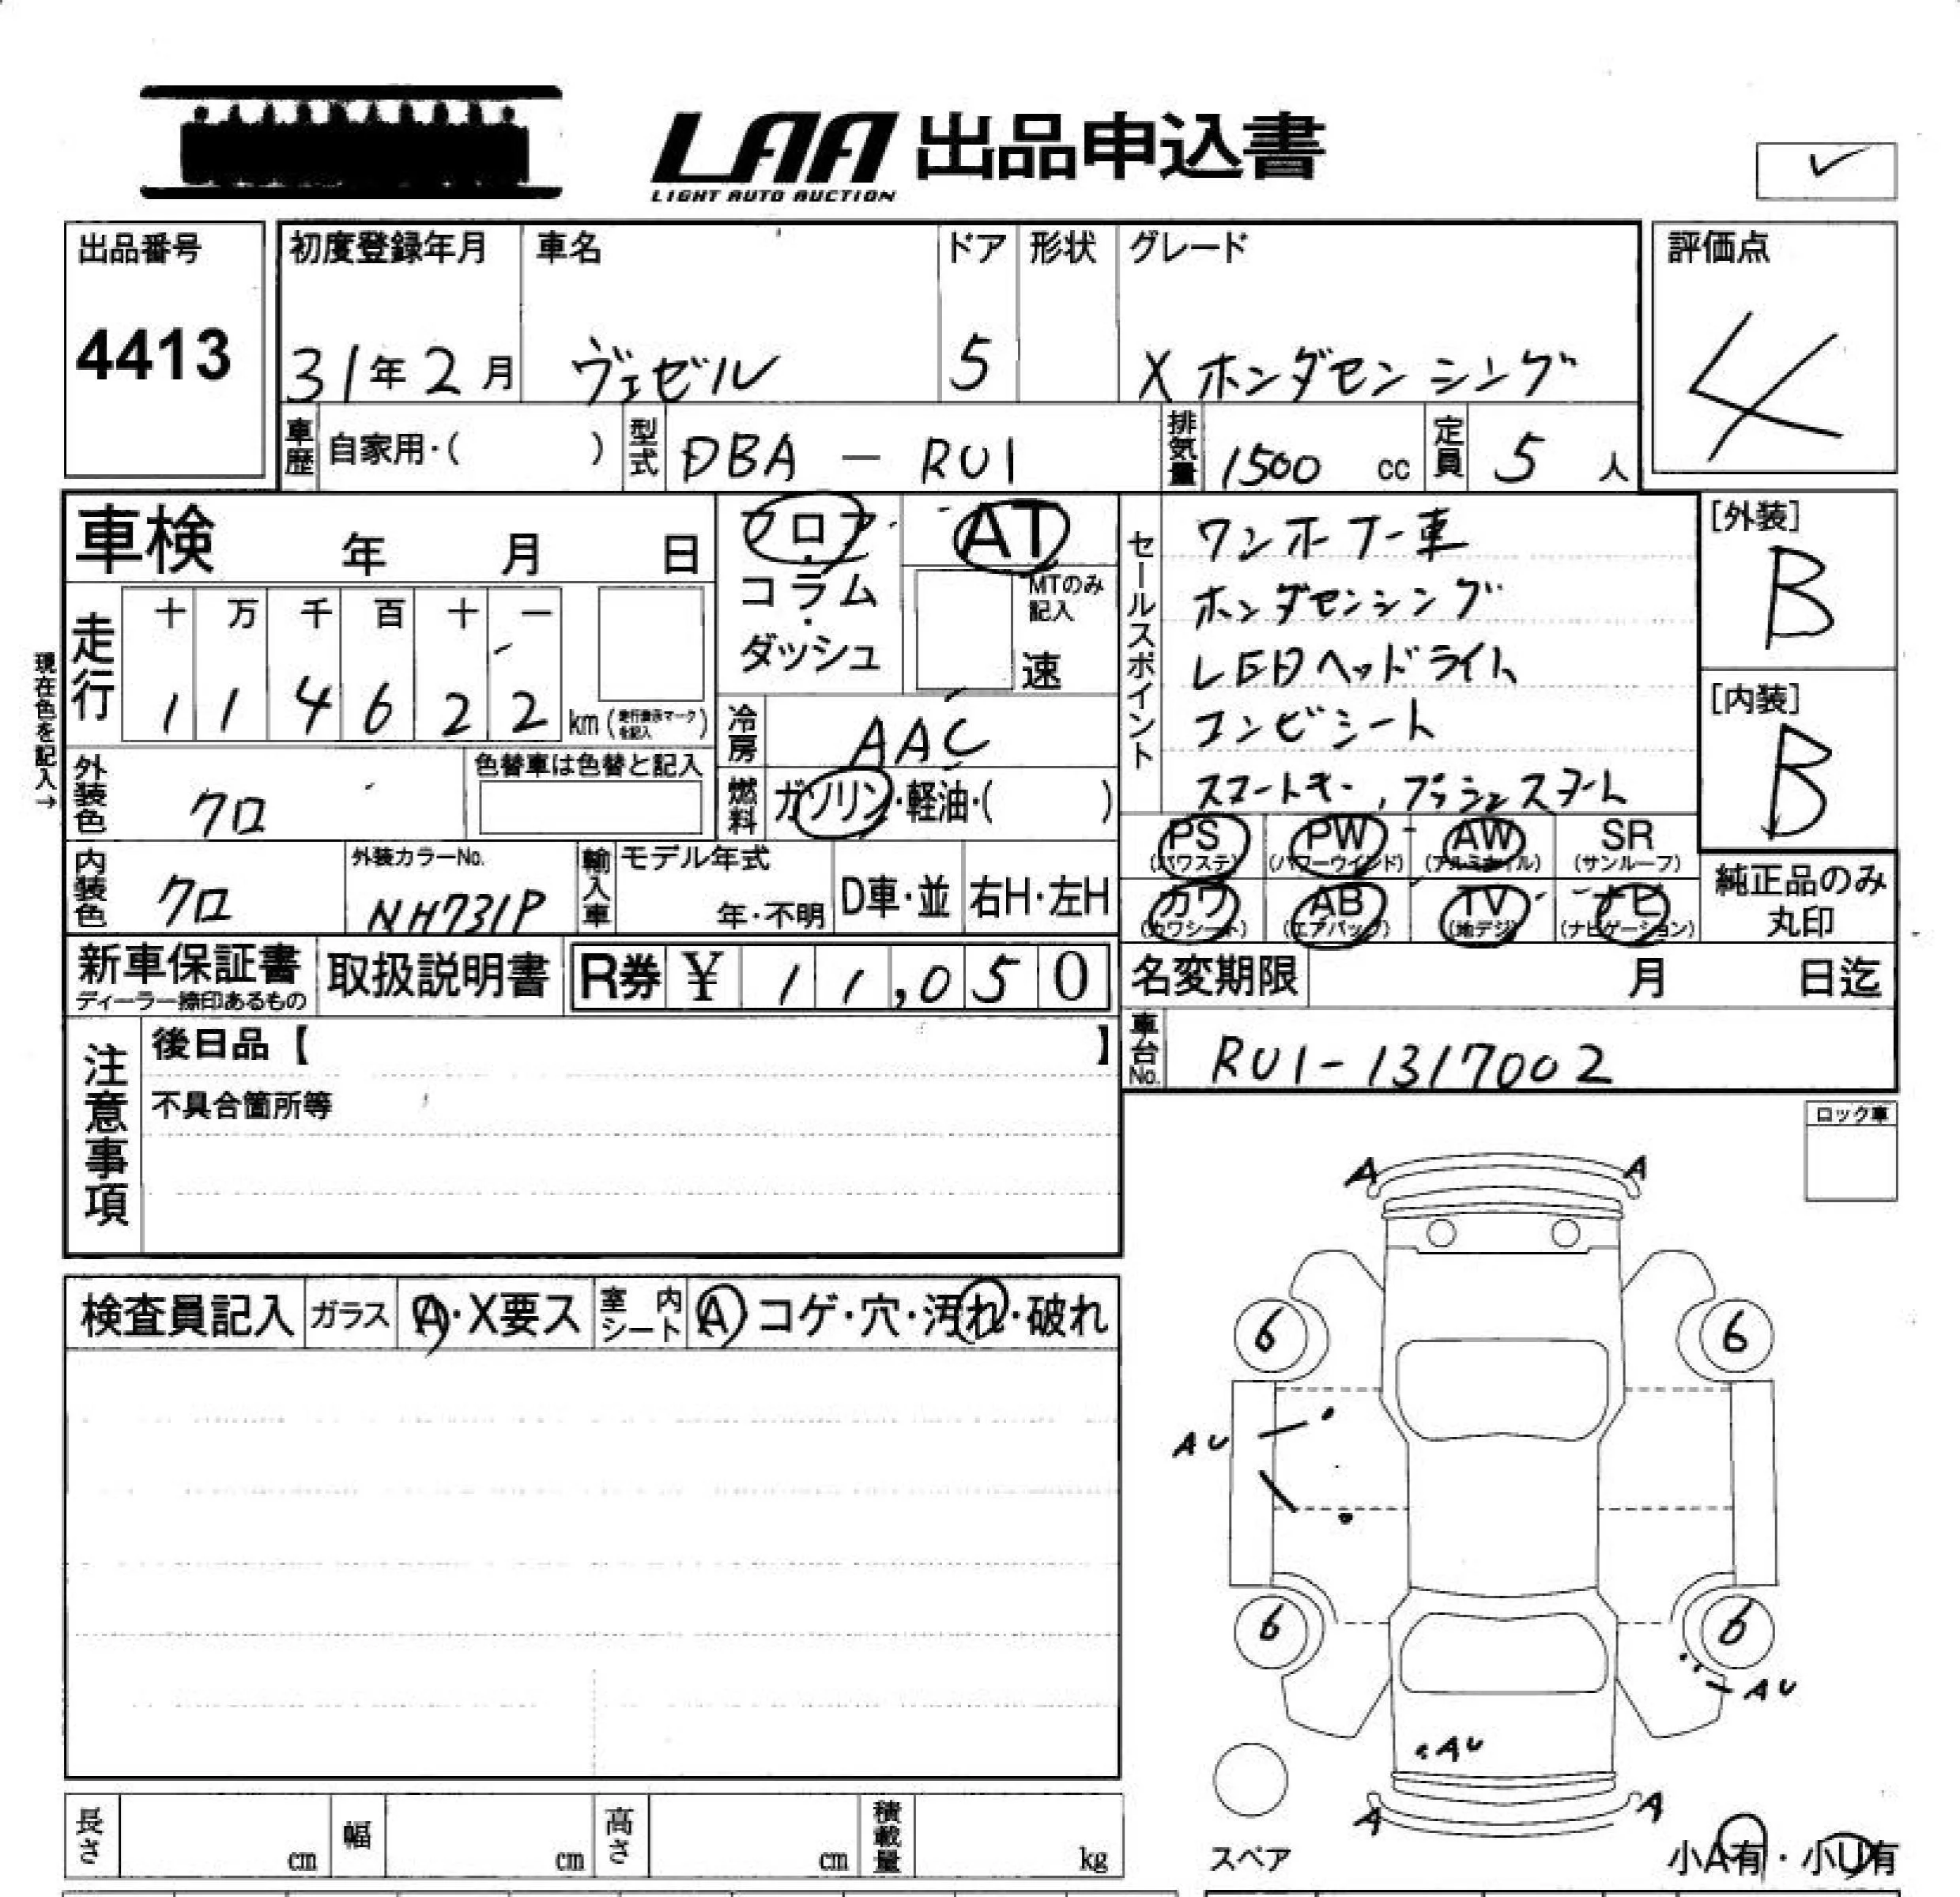 LAA 出品申込書
LIGHT AUTO AUCTION
✓
出品番号
4413
初度登録年月
31年2月
車名
ヴェゼル
ドア
5
形状
グレード
X ホンダセンシング
評価点
4
車歴 自家用・( )
型式 DBA - RU1
排気量 1500 cc
定員 5 人
車検 年 月 日
フロア・
コラム
・
ダッシュ
AT
MTのみ
記入
速
セールスポイント
ワンオーナー車
ホンダセンシング
LEDヘッドライト
コンビシート
スマートキー, プッシュスタート
[外装]
B
[内装]
B
現在色を記入→
走行
十 万 千 百 十 一
1 1 4 6 2 2 km (走行表示マークを記入)
冷房 AAC
燃料 ガソリン・軽油・( )
外装色 クロ
色替車は色替と記入
内装色 クロ
外装カラーNo.
NH731P
輸入車 モデル年式
年・不明
D車・並
右H・左H
PS (パワステ)
PW (パワーウインド)
AW (アルミホイル)
SR (サンルーフ)
カワ (カワシート)
AB (エアバック)
TV (地デジ)
ナビ (ナビゲーション)
純正品のみ
丸印
新車保証書
ディーラー捺印あるもの
取扱説明書
R券 ¥ 1 1,0 5 0
名変期限 月 日迄
車台No. RU1-1317002
注意事項
後日品【 】
不具合箇所等
ロック車
検査員記入
ガラス A・X要ス
室内シート A コゲ・穴・汚れ・破れ
A A
6 6
AU
6 6
AU
AU
A A
スペア
小A有・小U有
長さ cm
幅 cm
高さ cm
積載量 kg